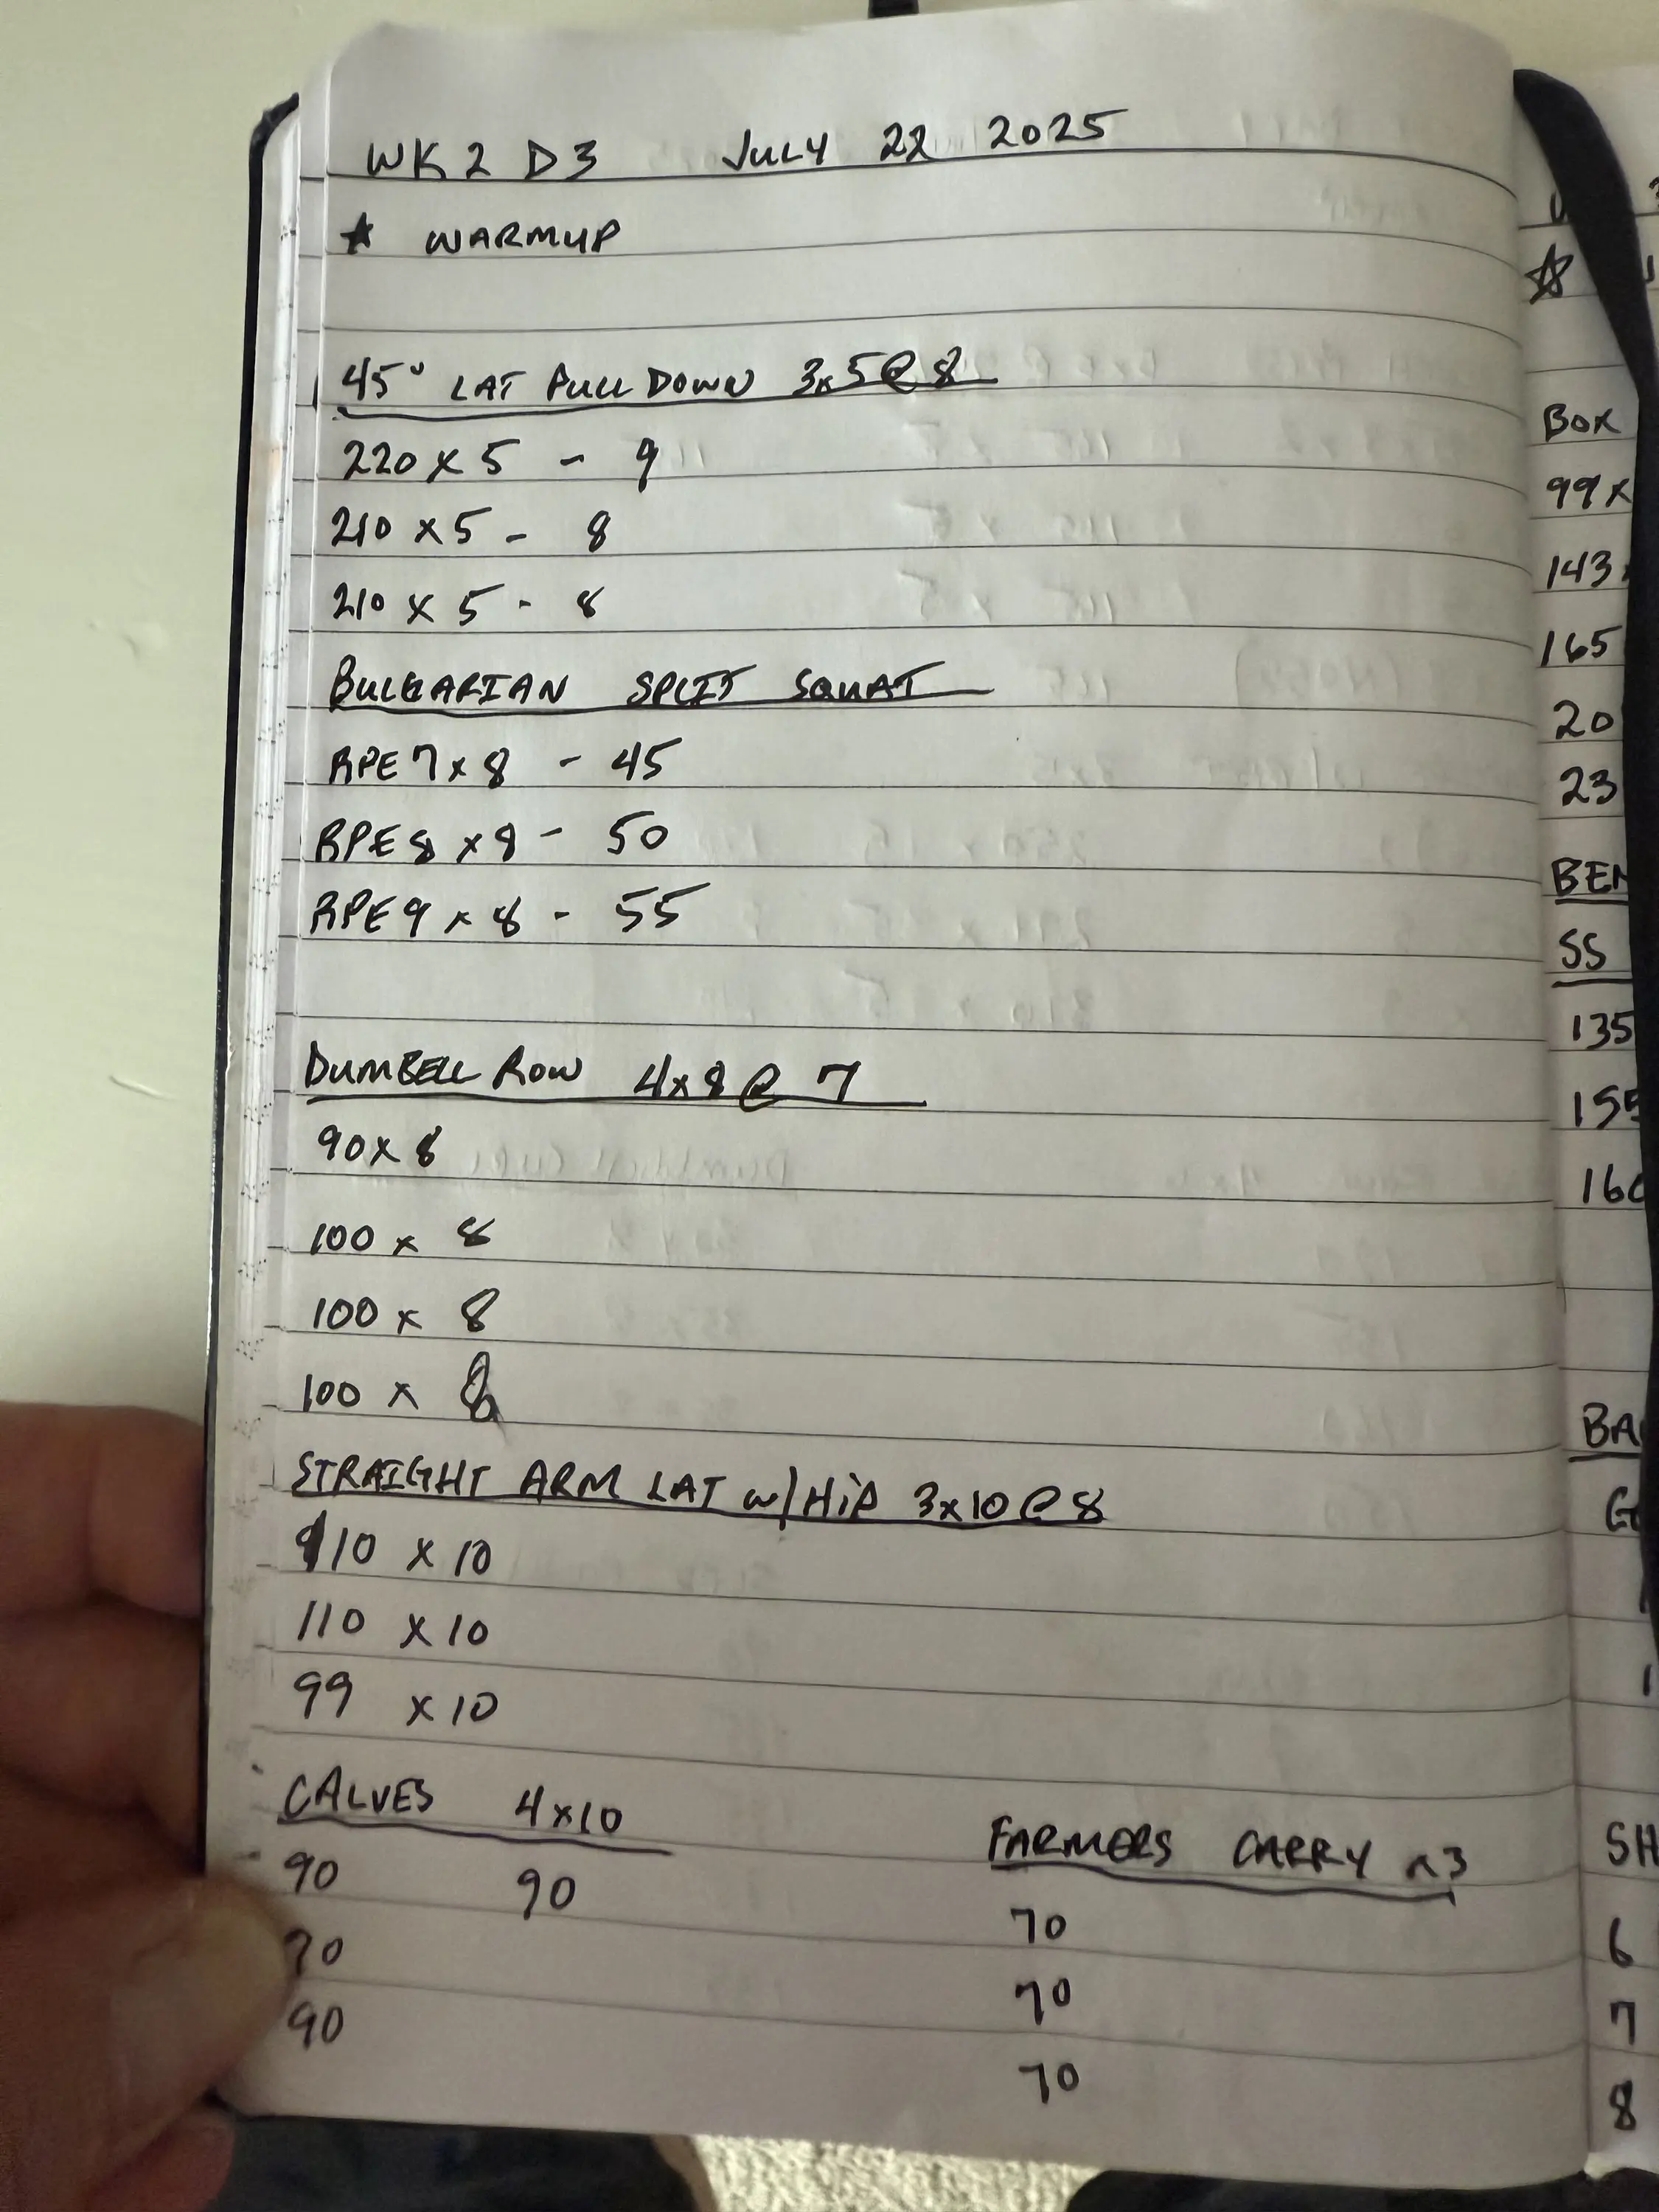 WK2 D3 JULY 22 2025
★ WARMUP
45° LAT PULL DOWN 3x5@8
220 x 5 - 9
210 x 5 - 8
210 x 5 - 8
BULGARIAN SPLIT SQUAT
RPE 7 x 8 - 45
RPE 8 x 8 - 50
RPE 9 x 8 - 55
DUMBELL ROW 4x8@7
90 x 8
100 x 8
100 x 8
100 x 8
STRAIGHT ARM LAT w/HiP 3x10@8
110 x 10
110 x 10
99 x 10
CALVES 4x10
90 90
90
90
FARMERS CARRY x3
70
70
70
BOX
99x
143
165
20
23
BEN
SS
135
155
160
BA
SH
6
7
8